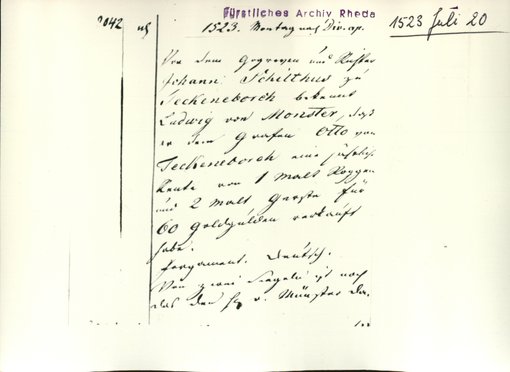 Fürstliches Archiv Rheda
1523 Juli 20
2042
1523. Montag nach Div. ap.
Vor dem Gogreven und Richter
Johann Schilthus zu
Teckeneborch bekennt
Ludwig von Monster, daß
er dem Grafen Otto von
Teckeneborch eine jährl.
Rente von 1 Malt Roggen
und 2 Malt Gerste für
60 Goldgulden verkauft
habe.
Pergament. Deutsch.
Von zwei Siegeln ist noch
das des v. Münster da.